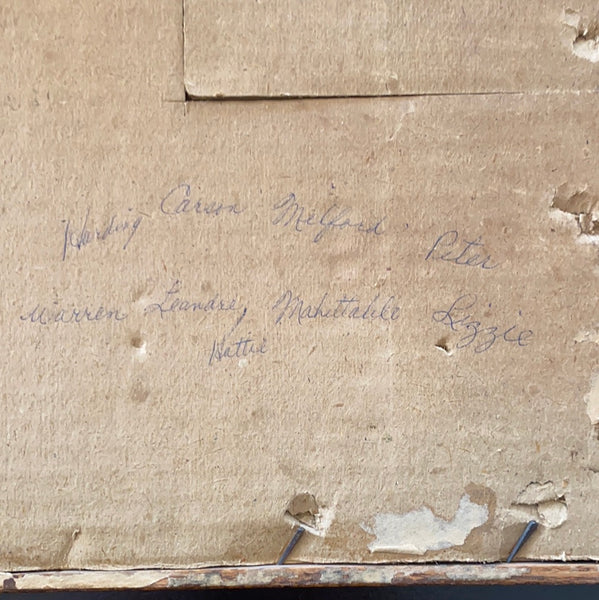 Harding Carson Milford. Peter
Warren Leandre, Mahettable Lizzie
Hattie